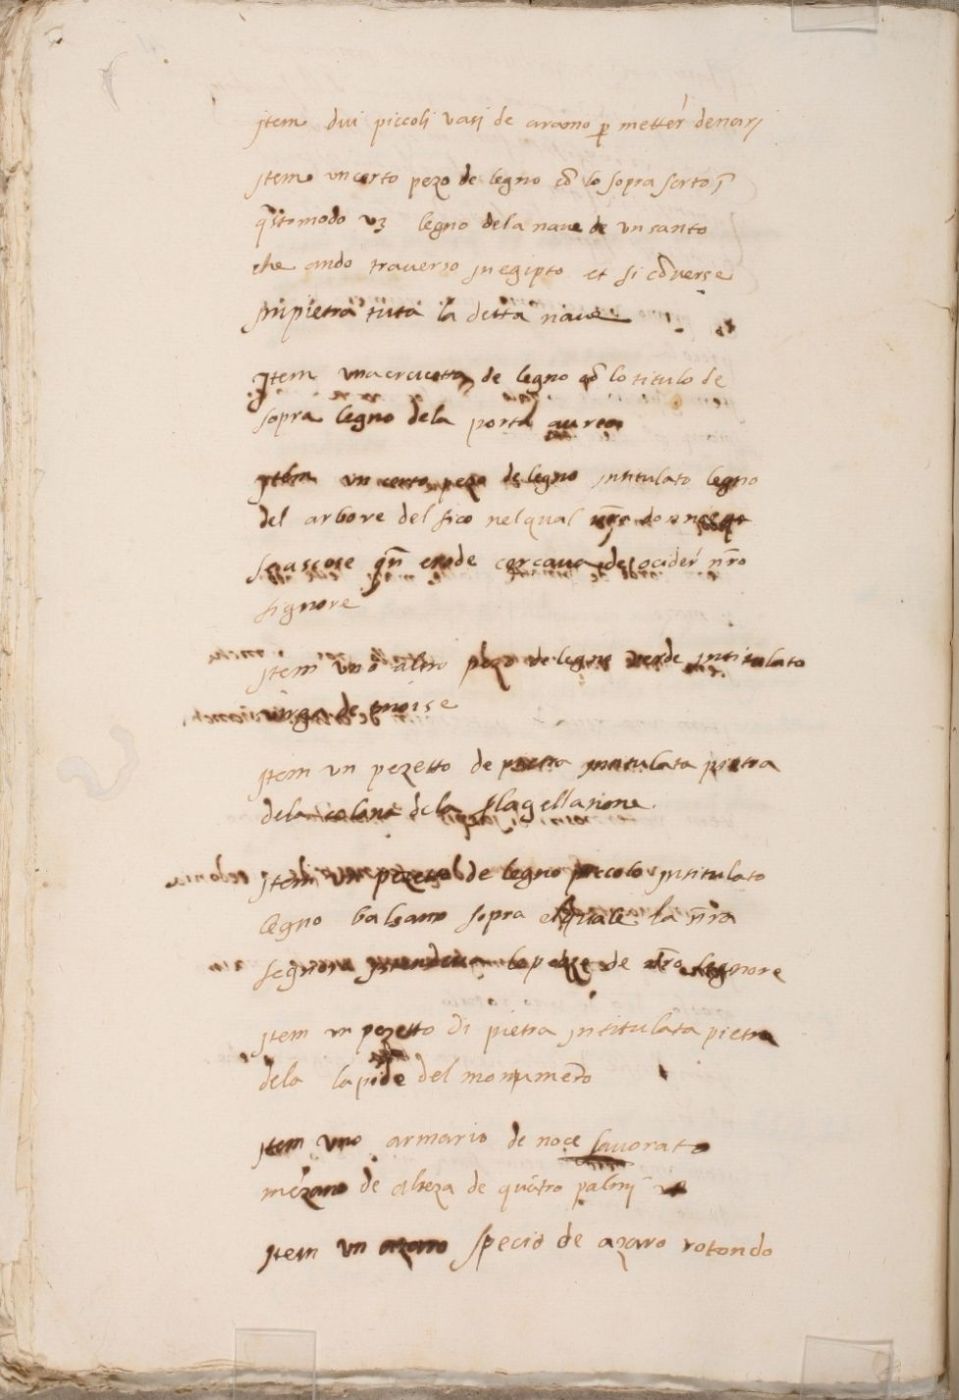 Jtem dui piccoli vasi de aramo p metter denarj
Jtem un certo pezo de legno cō lo sopra scrto j̄
q̄sto modo vz legno dela nave de un santo
che ando traverso in egipto et si cōverse
in pietra tuta la detta nave
Jtem una crucetta de legno cō lo titulo de
sopra legno dela porta aurea
Jtem un certo pezo de legno intitulato legno
del arbore del fico nel qual nr̄a donna
se nascose qn̄ erode cercava de ocider nr̄o
signore
Jtem uno altro pezo de legno verde intitulato
virga de moise
Jtem un pezetto de pietra intitulata pietra
dela colona dela flagellatione
Jtem un pezetto de legno piccolo intitulato
legno balsamo sopra el quale la nr̄a
segnora le peze de nr̄o segnore
Jtem un pezetto di pietra intitulata pietra
dela lapide del monumēto
Jtem uno armario de noce lavorato
mezano de alteza de quatro palmi
Jtem un specio de azaro rotondo